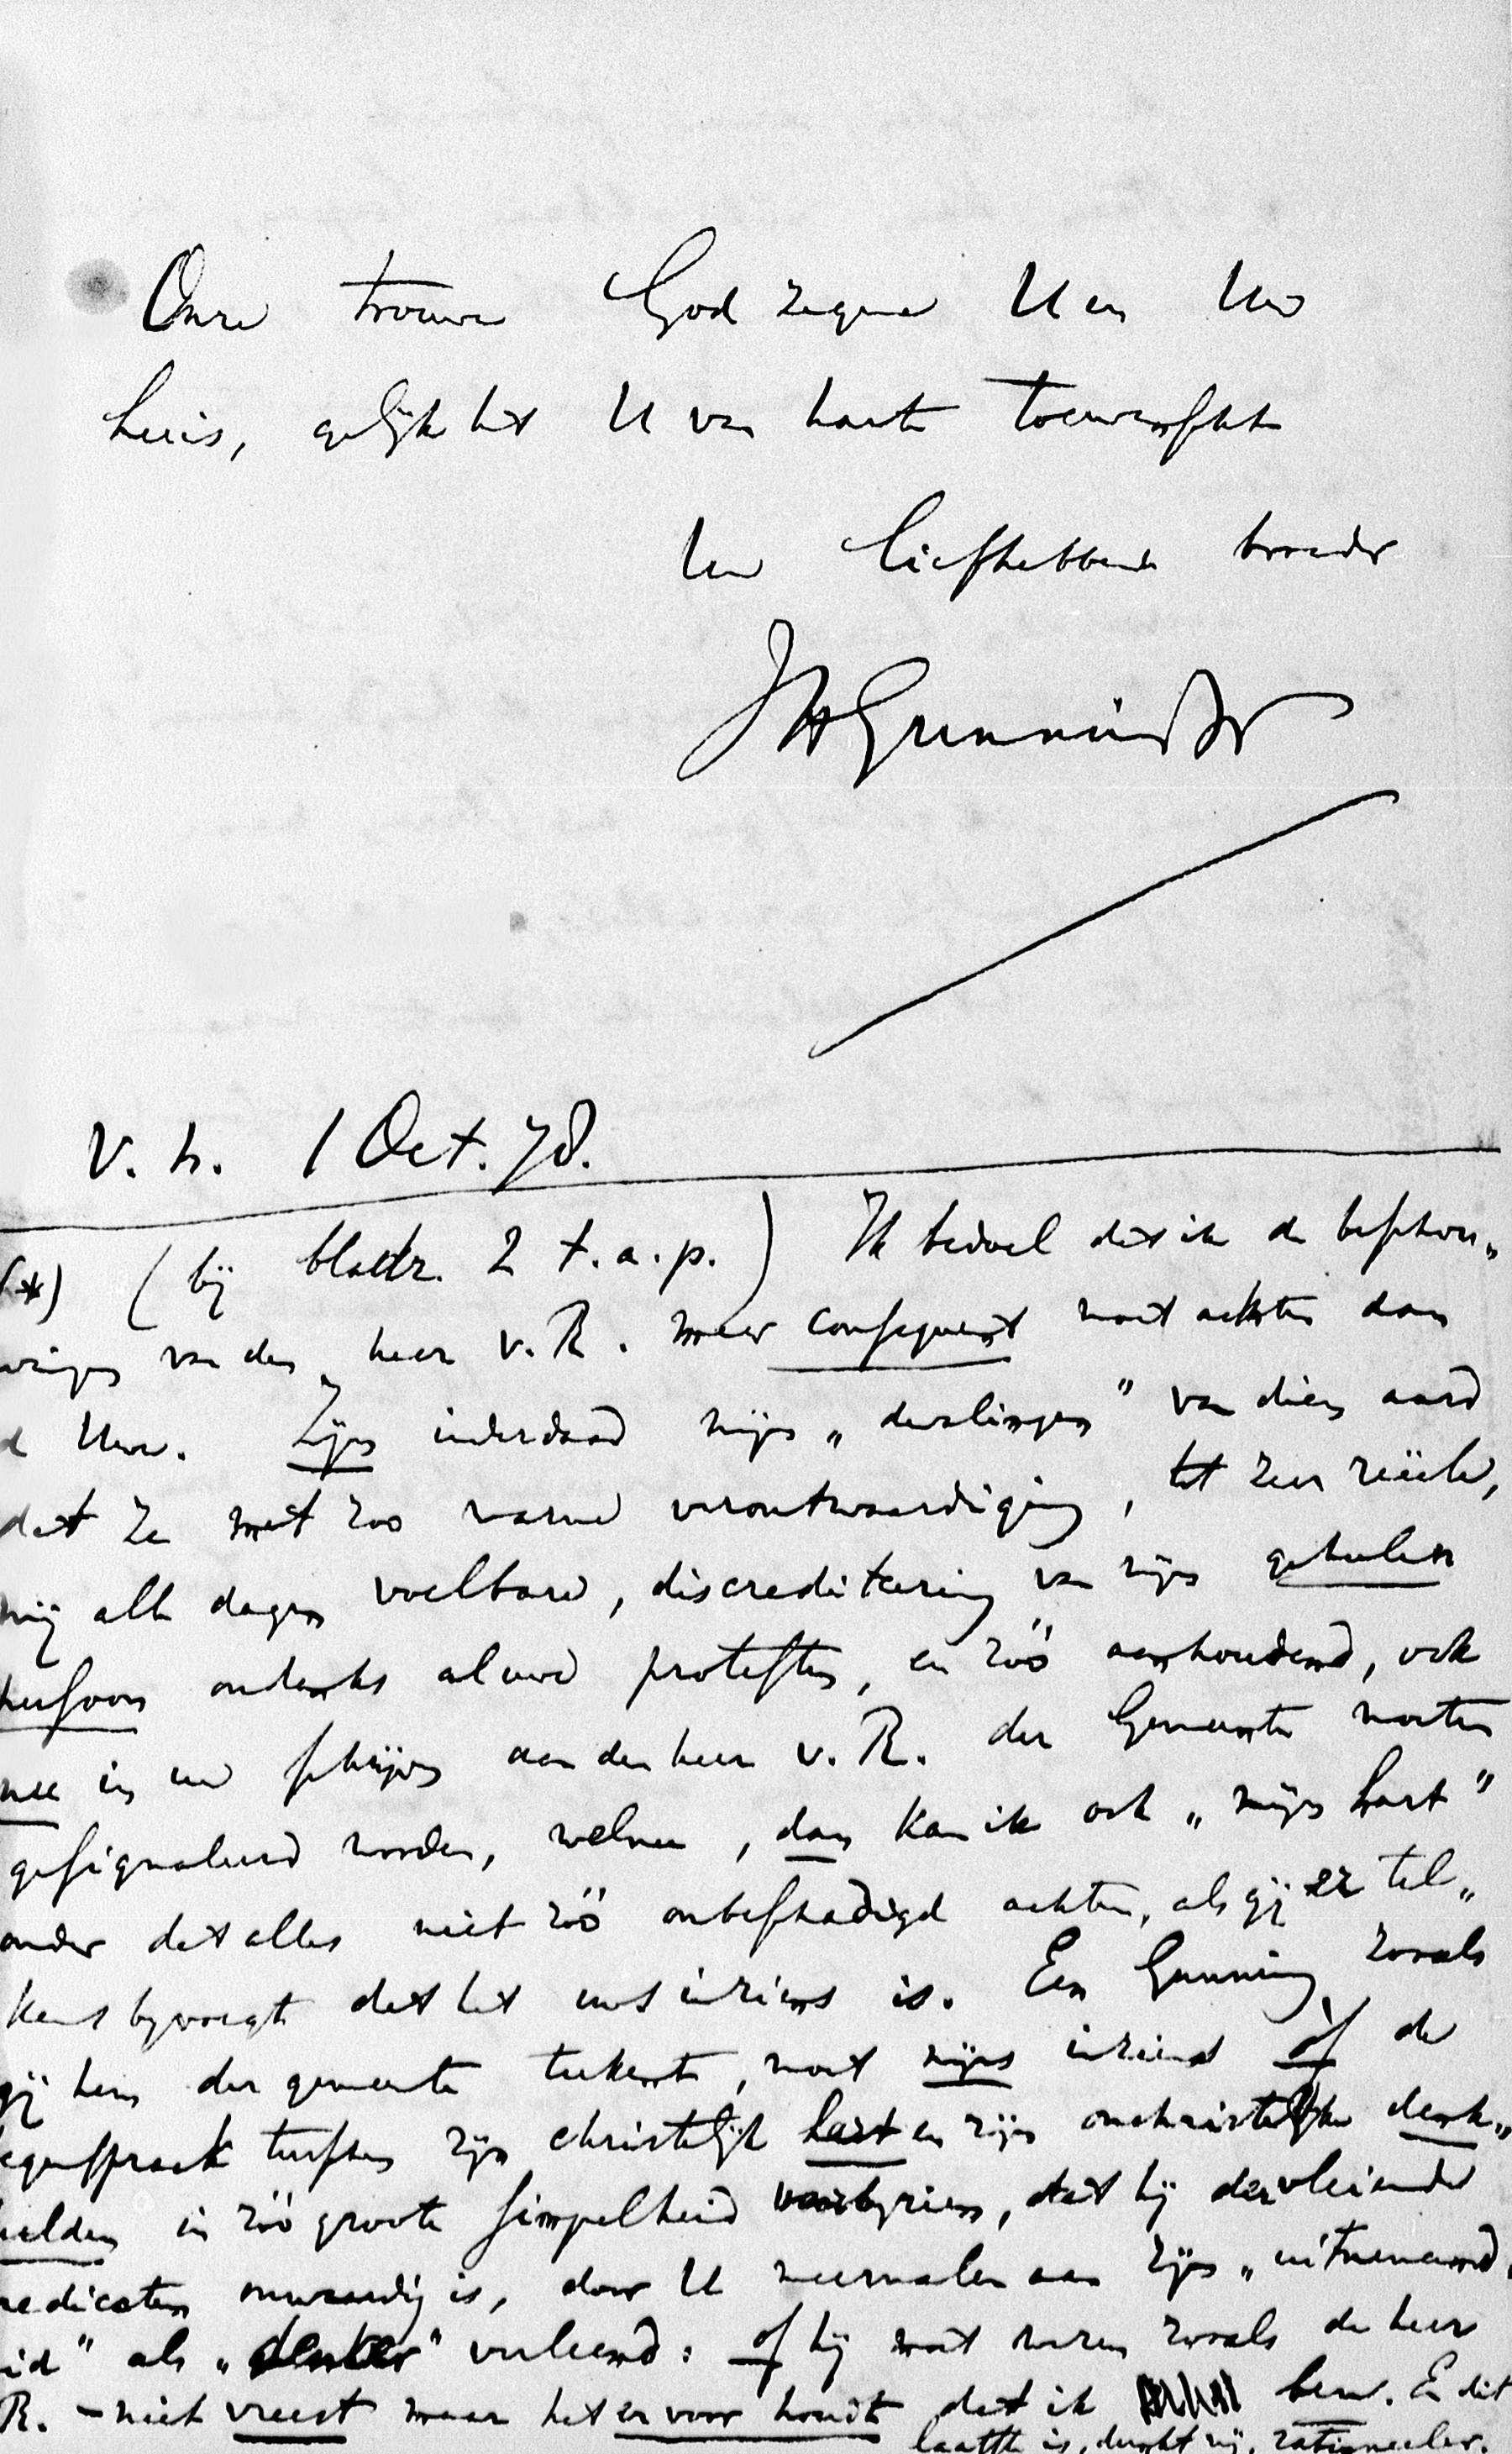 Onze trouwe God zegene U en Uw
huis, gelijk het U van harte toewenscht
Uw liefhebbende broeder
JHGunning Jr
V. h. 1 Oct. 78.
(*) (bij bladz. 2 t.a.p.) Ik bedoel dat ik de beschou„
wingen van den heer v. R. meer consequent moet achten dan
de Uwe. Zijn inderdaad mijn „dwalingen" van dien aard
dat ze met zoo warme verontwaardiging, tot zeer reëele,
mij alle dagen voelbare, discreditering van mijn geheelen
persoon ondanks al uwe protesten, en zóó aanhoudend, ook
nu in uw schrijven aan den heer v. R. der Gemeente moeten
gesignaleerd worden, welnu, dan kan ik ook „mijn hart"
onder dat alles niet zóó onbeschadigd achten, als gij er tel„
kens byvoegt dat het uws inziens is. Een Gunning zooals
gij hem der gemeente teekent, moet mijns inziens òf de
tegenspraak tusschen zijn christelijk hart en zijn onchristelijke denk„
beelden in zóó groote simpelheid voorbyzien, dat hij der vleiende
predicaten onwaardig is, door U meermalen aan zijn „uitnemend„
heid" als „denker" verleend: of hij moet wezen zooals de heer
R. – niet vreest maar het er voor houdt dat ik ben. En dit
laatste is, dunkt mij, rationeeler.